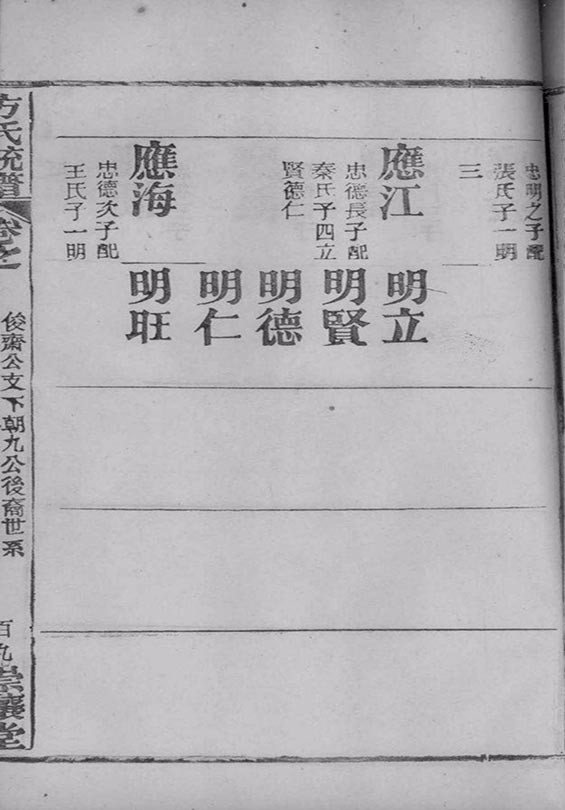 忠明之子配
張氏子一明
三
應江
忠德長子配
秦氏子四立
賢德仁
應海
忠德次子配
王氏子一明
明立
明賢
明德
明仁
明旺
方氏統譜
卷之
俊齋公支下朝九公後裔世系
百九
崇讓堂